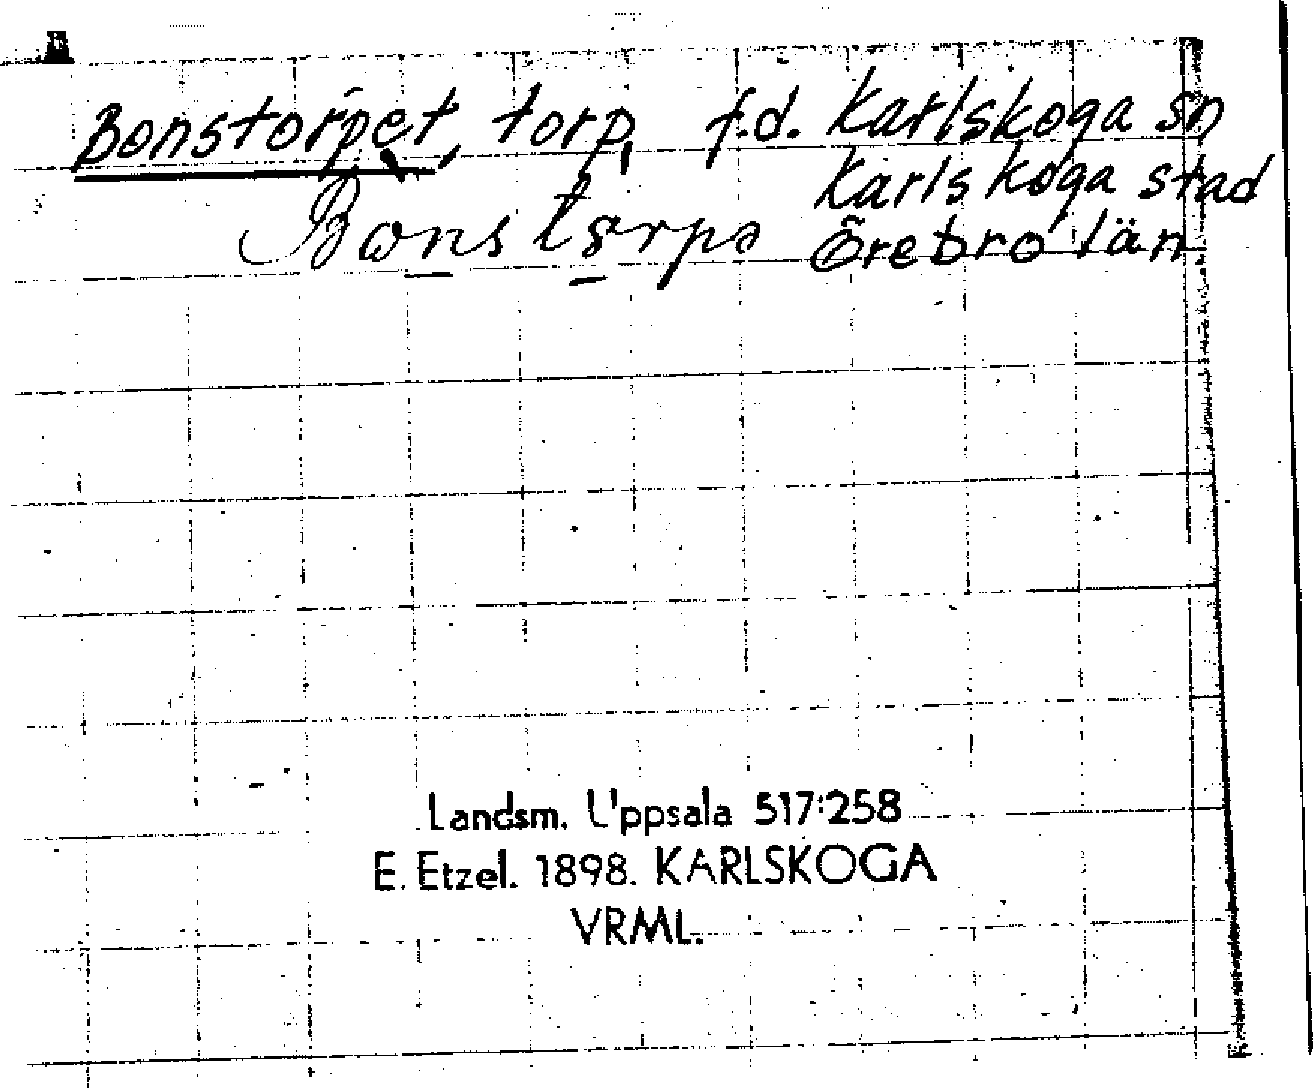 Bonstorpet, torp, f.d. Karlskoga sn
Karlskoga stad
Bonstorps Örebro län
Landsm. Uppsala 517:258
E. Etzel. 1898. KARLSKOGA
VRML.